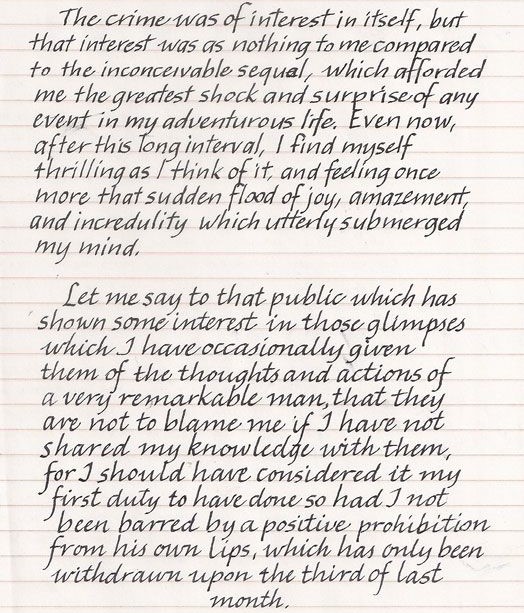 The crime was of interest in itself, but
that interest was as nothing to me compared
to the inconceivable sequal, which afforded
me the greatest shock and surprise of any
event in my adventurous life. Even now,
after this long interval, I find myself
thrilling as I think of it, and feeling once
more that sudden flood of joy, amazement,
and incredulity which utterly submerged
my mind.
Let me say to that public which has
shown some interest in those glimpses
which I have occasionally given
them of the thoughts and actions of
a very remarkable man, that they
are not to blame me if I have not
shared my knowledge with them,
for I should have considered it my
first duty to have done so had I not
been barred by a positive prohibition
from his own lips, which has only been
withdrawn upon the third of last
month.